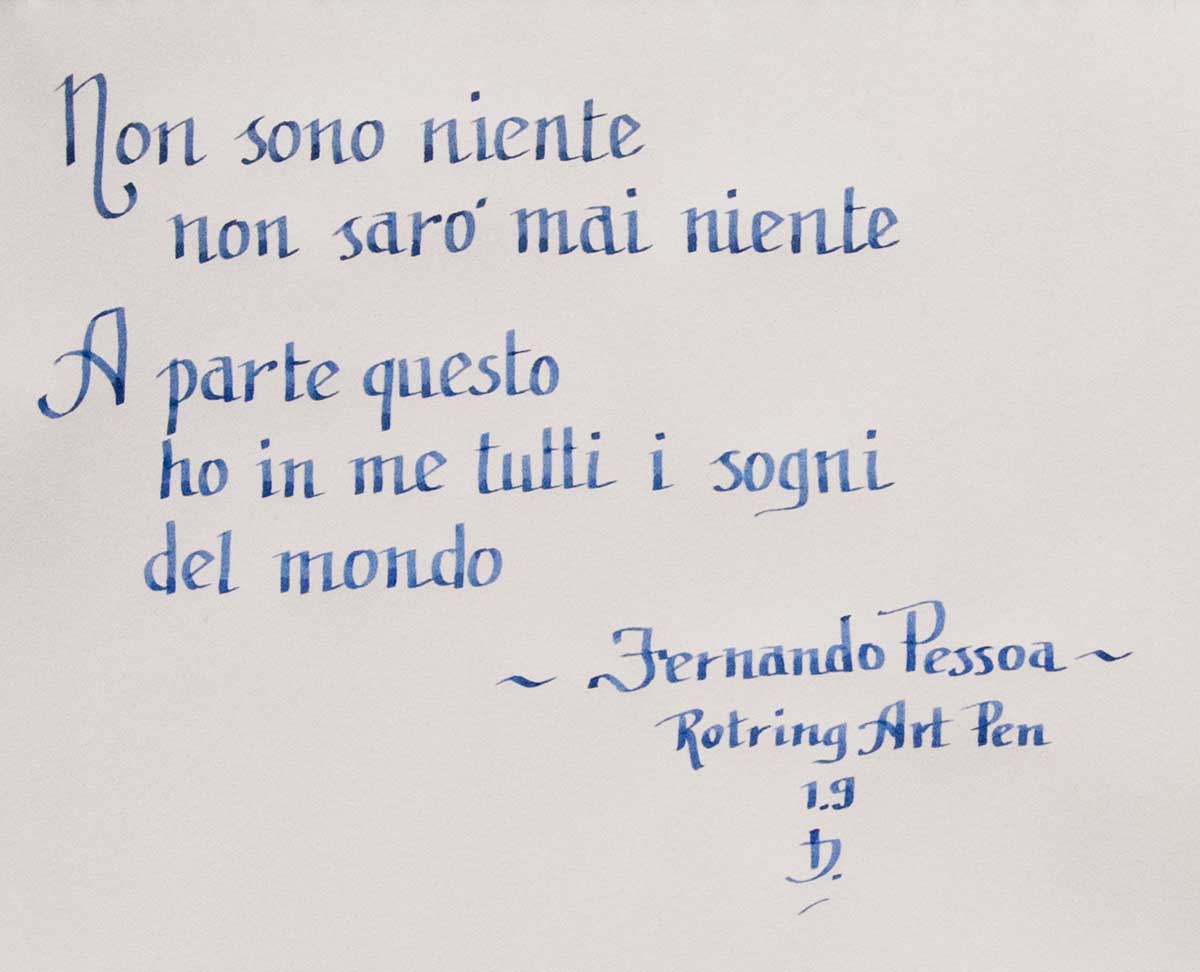 Non sono niente
non saro' mai niente
A parte questo
ho in me tutti i sogni
del mondo
~ Fernando Pessoa ~
Rotring Art Pen
1.9